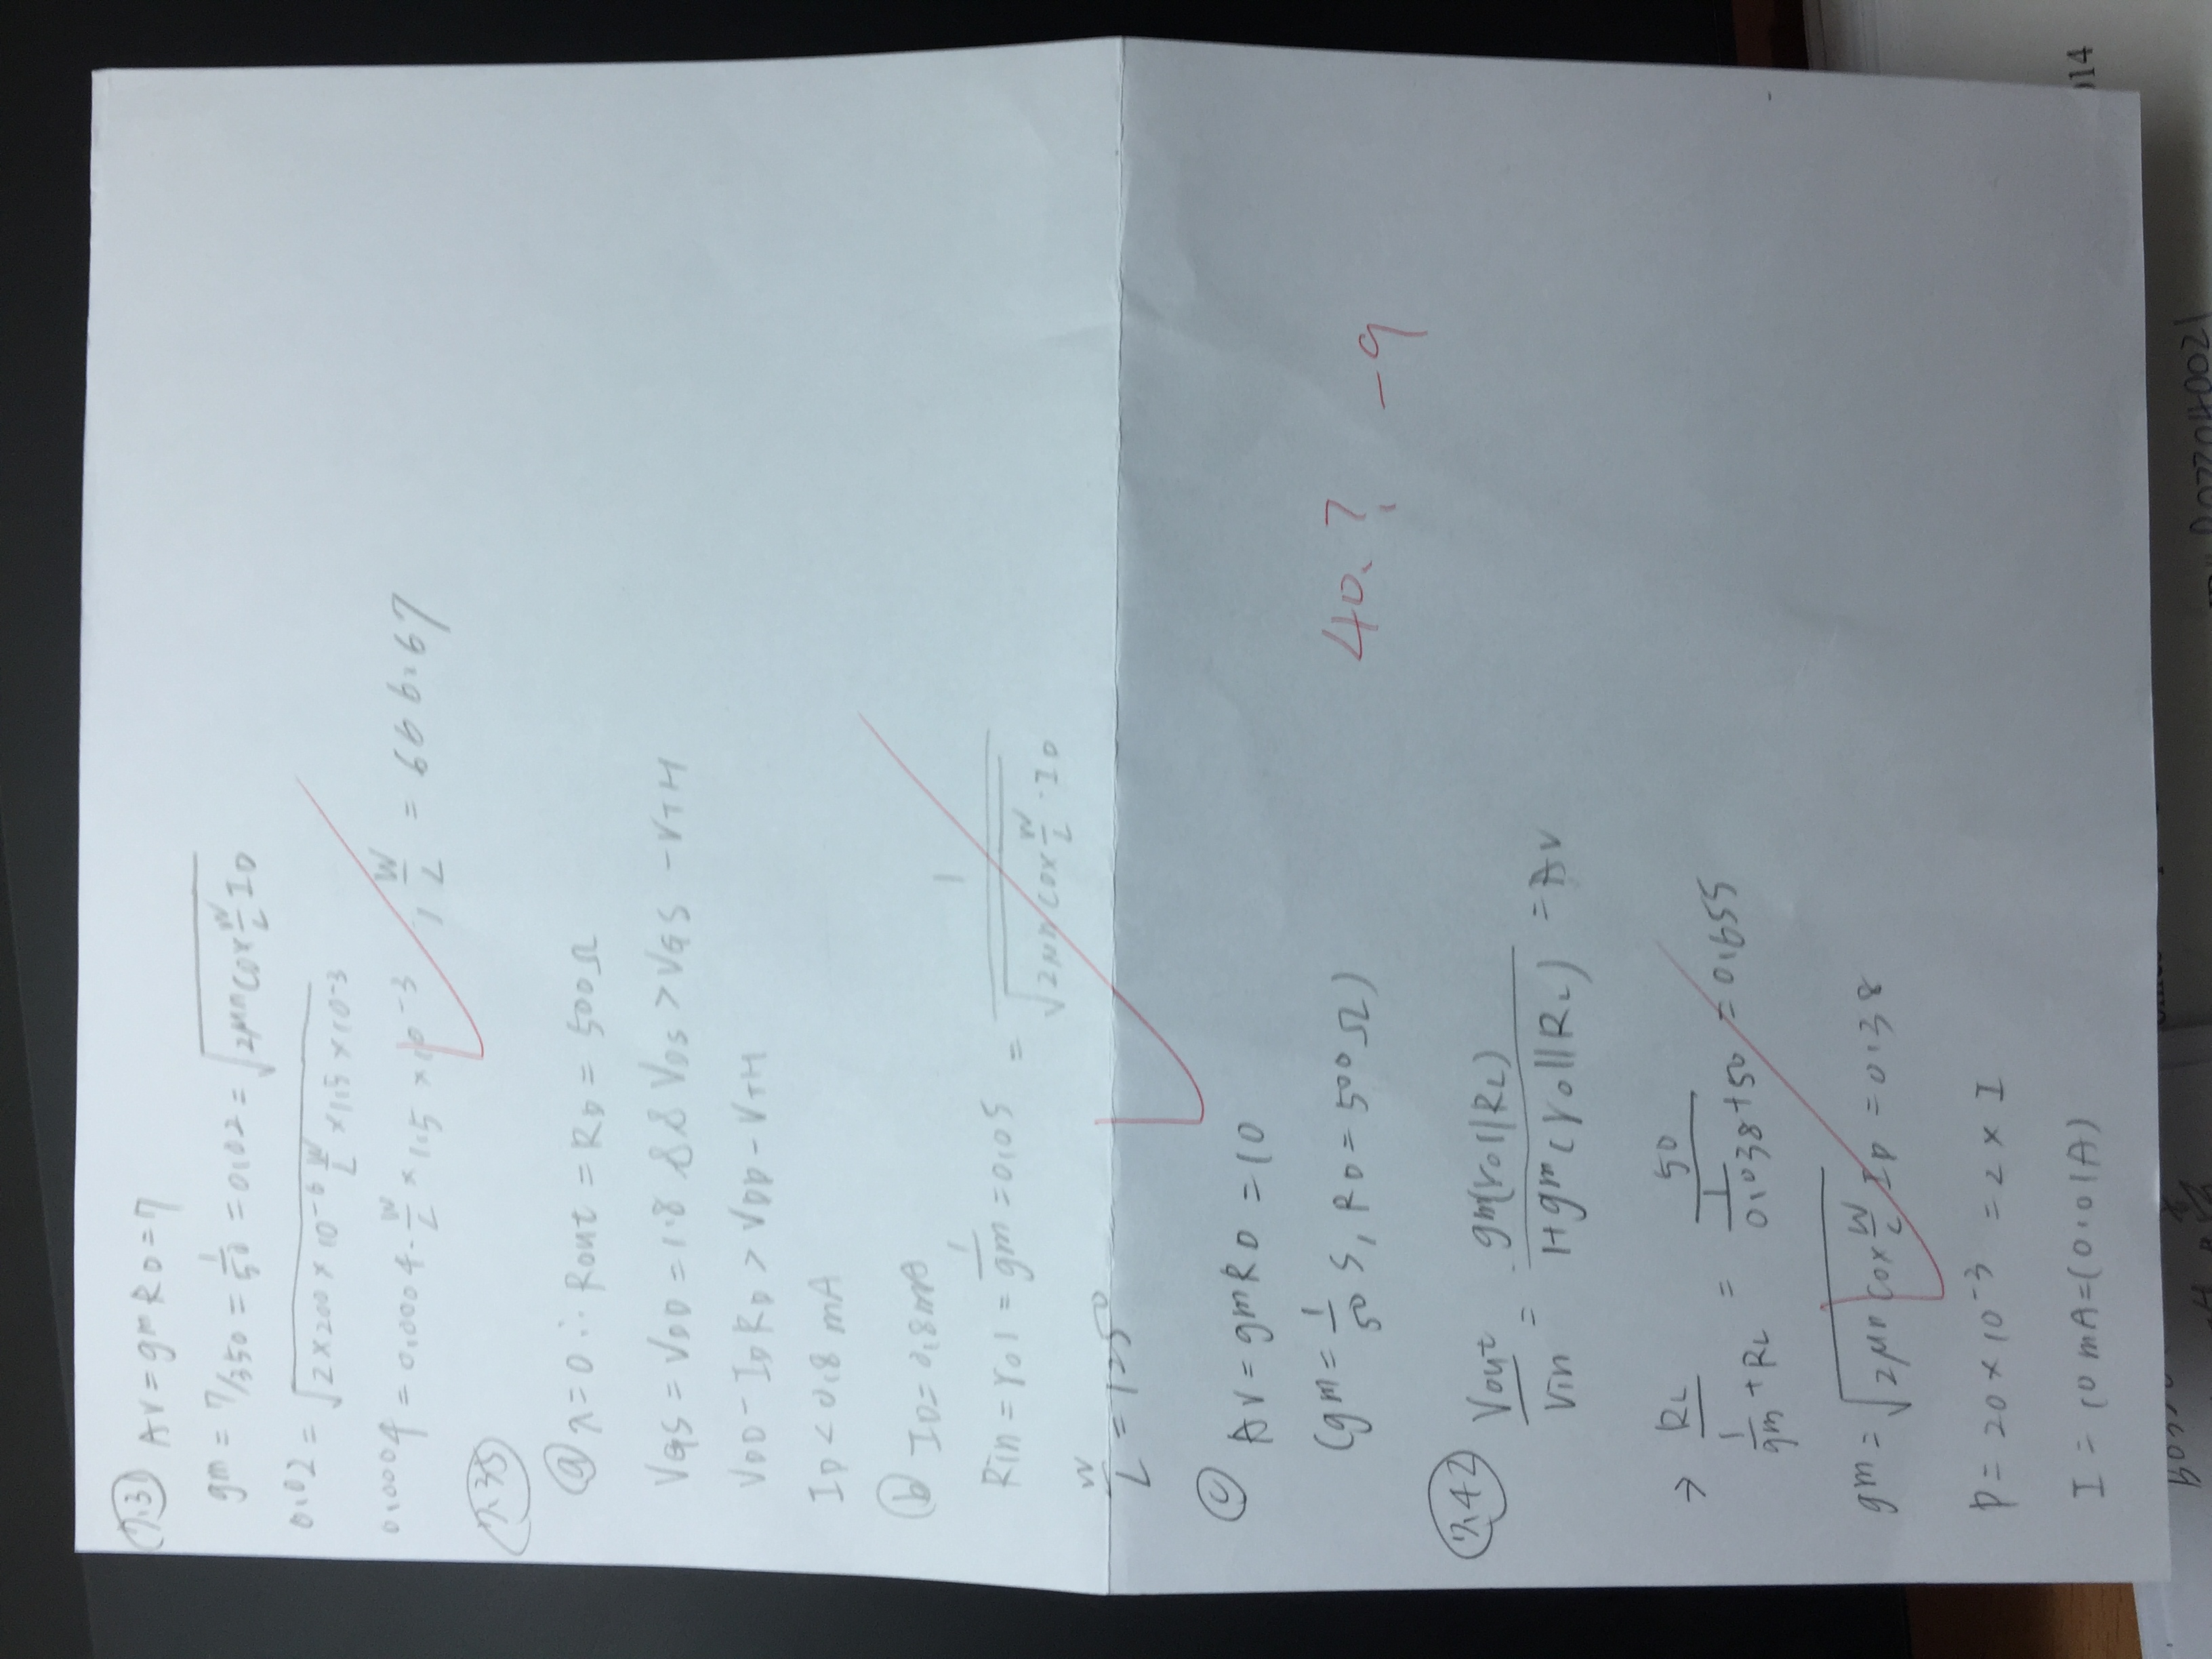 7.31 AV = gmRD = 7
gm = 7/350 = 1/50 = 0.02 = √(2μnCox W/L ID)
0.02 = √(2×200×10^-6 W/L ×1.5×10^-3)
0.0004 = 0.0004·W/L ×1.5×10^-3 , W/L = 666.67
7.35
ⓐ λ=0 ∴ Rout = RD = 500Ω
VGS = VDD = 1.8 && VDS > VGS - VTH
VDD - IDRD > VDD - VTH
ID < 0.8 mA
ⓑ ID = 0.8mA
Rin = ro1 = 1/gm = 0.05 = 1/√(2μnCox W/L · ID)
W/L = 1250
ⓒ AV = gmRD = 10
(gm = 1/50 S, RD = 500Ω)
40. ? -9
7.42 Vout/Vin = gm(ro||RL)/(1+gm(ro||RL)) = AV
→ RL/(1/gm + RL) = 50/(1/0.038+50) = 0.655
gm = √(2μnCox W/L ID) = 0.38
P = 20×10^-3 = 2 × I
I = 10mA = (0.01A)
014